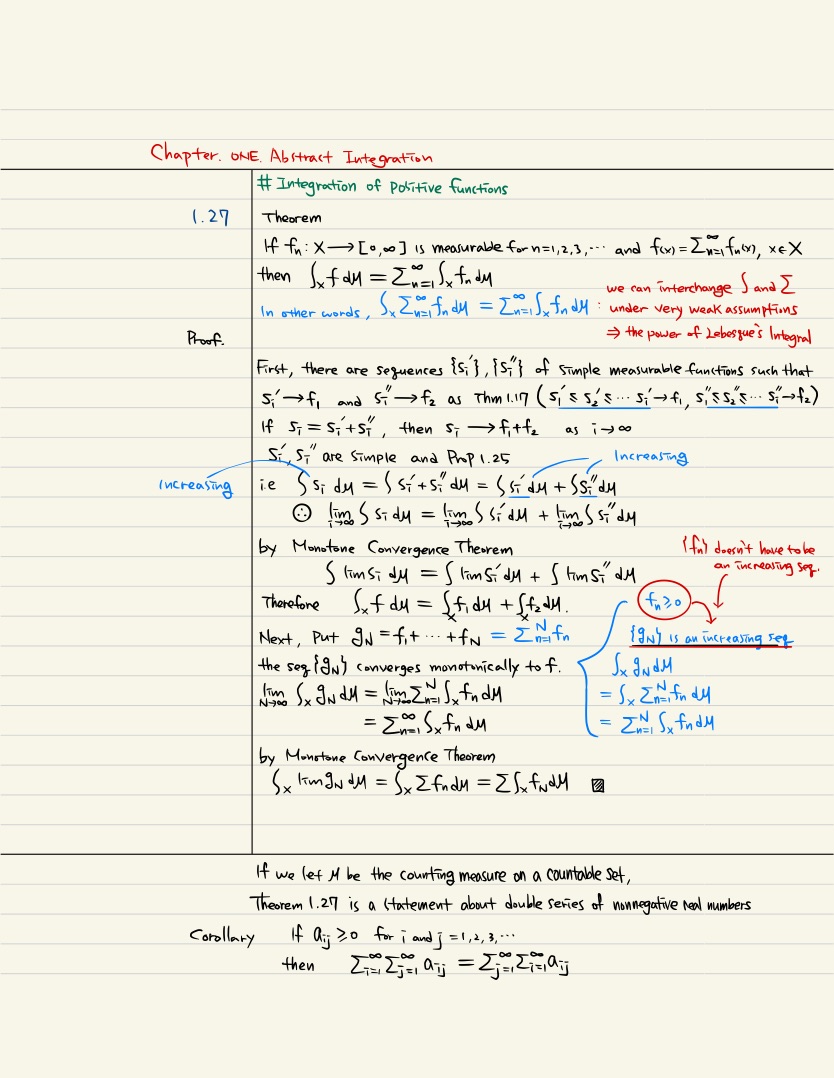 Chapter. ONE. Abstract Integration
# Integration of positive functions
1.27 Theorem
If fₙ : X → [0,∞] is measurable for n=1,2,3,⋯ and f(x) = Σₙ₌₁^∞ fₙ(x), x∈X
then ∫ₓ f dμ = Σₙ₌₁^∞ ∫ₓ fₙ dμ
In other words, ∫ₓ Σₙ₌₁^∞ fₙ dμ = Σₙ₌₁^∞ ∫ₓ fₙ dμ :
we can interchange ∫ and Σ
under very weak assumptions
⇒ the power of Lebesgue's Integral
Proof.
First, there are sequences {sᵢ'}, {sᵢ''} of simple measurable functions such that
sᵢ' → f₁ and sᵢ'' → f₂ as Thm 1.17 (s₁' ≤ s₂' ≤ ⋯ sᵢ' → f₁, s₁'' ≤ s₂'' ≤ ⋯ sᵢ'' → f₂)
If sᵢ = sᵢ' + sᵢ'', then sᵢ → f₁+f₂ as i→∞
sᵢ', sᵢ'' are simple and Prop 1.25
Increasing
increasing
i.e ∫ sᵢ dμ = ∫ sᵢ' + sᵢ'' dμ = ∫ sᵢ' dμ + ∫ sᵢ'' dμ
∴ lim_{i→∞} ∫ sᵢ dμ = lim_{i→∞} ∫ sᵢ' dμ + lim_{i→∞} ∫ sᵢ'' dμ
by Monotone Convergence Theorem
{fₙ} doesn't have to be
an increasing seq.
∫ lim sᵢ dμ = ∫ lim sᵢ' dμ + ∫ lim sᵢ'' dμ
Therefore ∫ₓ f dμ = ∫ₓ f₁ dμ + ∫ₓ f₂ dμ.
fₙ ≥ 0
Next, put g_N = f₁ + ⋯ + f_N = Σₙ₌₁^N fₙ
{g_N} is an increasing seq
the seq {g_N} converges monotonically to f.
∫ₓ g_N dμ
= ∫ₓ Σₙ₌₁^N fₙ dμ
= Σₙ₌₁^N ∫ₓ fₙ dμ
lim_{N→∞} ∫ₓ g_N dμ = lim_{N→∞} Σₙ₌₁^N ∫ₓ fₙ dμ
= Σₙ₌₁^∞ ∫ₓ fₙ dμ
by Monotone Convergence Theorem
∫ₓ lim g_N dμ = ∫ₓ Σ fₙ dμ = Σ ∫ₓ f_N dμ ▨
If we let μ be the counting measure on a countable set,
Theorem 1.27 is a statement about double series of nonnegative real numbers
Corollary If aᵢⱼ ≥ 0 for i and j = 1,2,3,⋯
then Σᵢ₌₁^∞ Σⱼ₌₁^∞ aᵢⱼ = Σⱼ₌₁^∞ Σᵢ₌₁^∞ aᵢⱼ